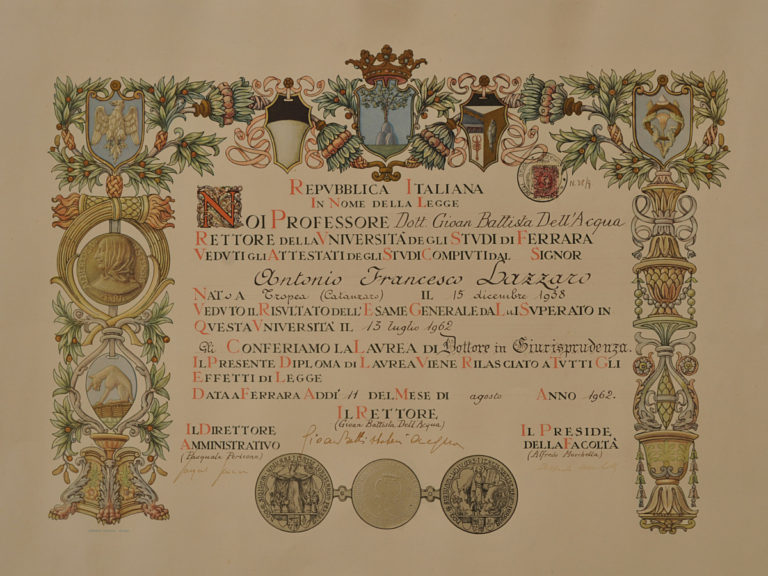 REPVBBLICA ITALIANA
IN NOME DELLA LEGGE
NOI PROFESSORE Dott. Gioan Battista Dell'Acqua
RETTORE DELLA VNIVERSITÀ DEGLI STVDI DI FERRARA
VEDVTI GLI ATTESTATI DEGLI STVDI COMPIVTI DAL SIGNOR
Antonio Francesco Lazzaro
NATO A Tropea (Catanzaro) IL 15 dicembre 1938
VEDVTO IL RISVLTATO DELL'ESAME GENERALE DA LUI SVPERATO IN
QVESTA VNIVERSITÀ IL 13 luglio 1962
Gli CONFERIAMO LA LAVREA DI Dottore in Giurisprudenza.
IL PRESENTE DIPLOMA DI LAVREA VIENE RILASCIATO A TVTTI GLI
EFFETTI DI LEGGE
DATA A FERRARA ADDÌ 11 DEL MESE DI agosto ANNO 1962.
IL RETTORE
(Gioan Battista Dell'Acqua)
IL DIRETTORE
AMMINISTRATIVO
IL PRESIDE
DELLA FACOLTÀ